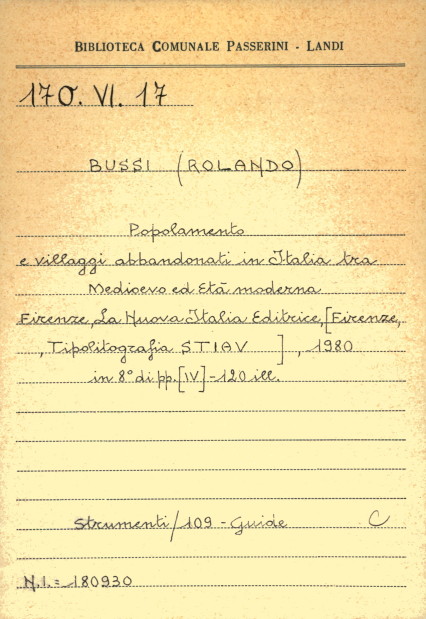 BIBLIOTECA COMUNALE PASSERINI - LANDI
170. VI. 17
BUSSI (ROLANDO)
Popolamento
e villaggi abbandonati in Italia tra
Medioevo ed Età moderna
Firenze, La Nuova Italia Editrice, [Firenze,
, Tipolitografia STIAV ], 1980
in 8° di pp. [IV] - 120 ill.
Strumenti/109 - Guide C
N.I. = 180930